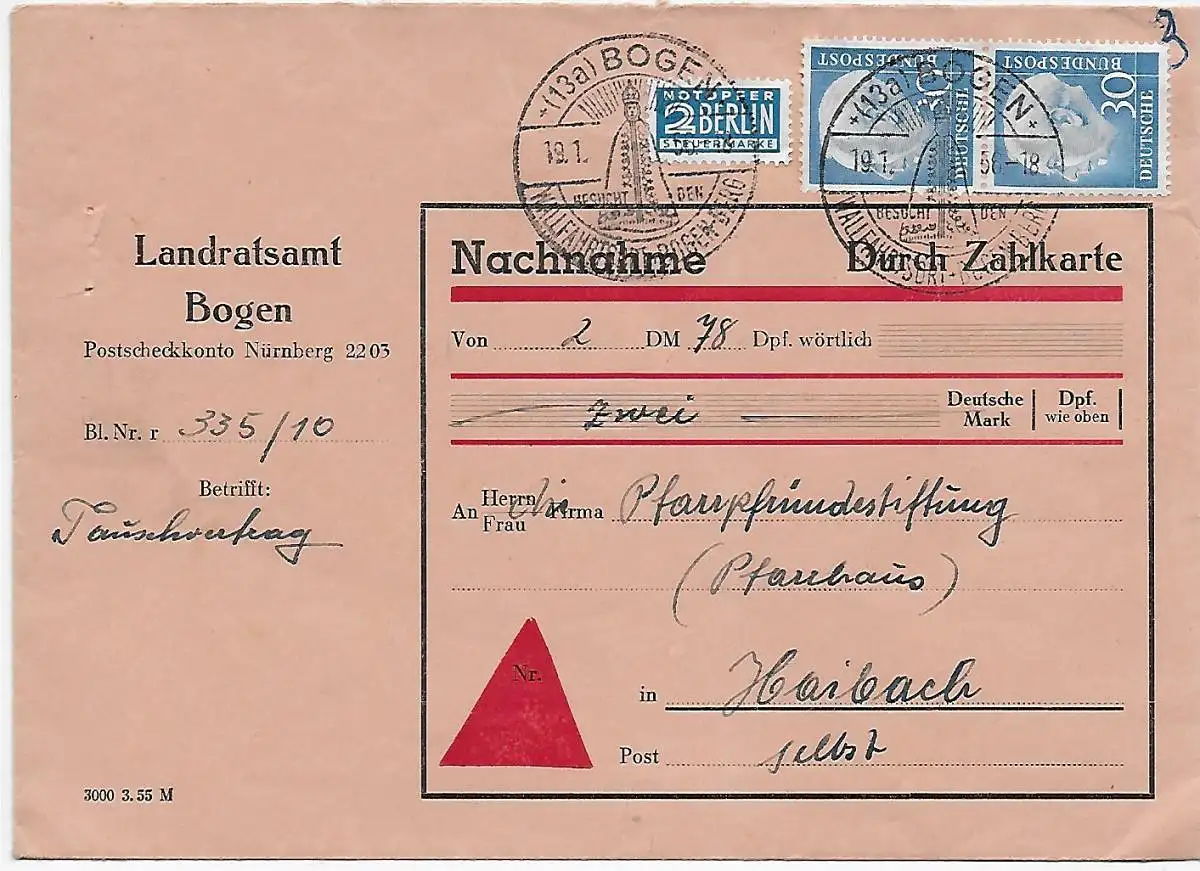 3
+(13a) BOGEN
19.1.
BESUCHT DEN
WALLFAHRTSORT-BOGENBERG
NOTOPFER
2 BERLIN
STEUERMARKE
DEUTSCHE
BUNDESPOST
30
DEUTSCHE
BUNDESPOST
30
+(13a) BOGEN+
19.1. 56.-18
BESUCHT DEN
WALLFAHRTSORT-BOGENBERG
Landratsamt
Bogen
Postscheckkonto Nürnberg 2203
Bl. Nr. r 335/10
Betrifft:
Tauschvertrag
3000 3.55 M
Nachnahme Durch Zahlkarte
Von 2 DM 78 Dpf. wörtlich
zwei Deutsche Mark Dpf. wie oben
An Herrn Frau Firma die Pfarrpfründestiftung
(Pfarrhaus)
Nr.
in Haibach
Post selbst